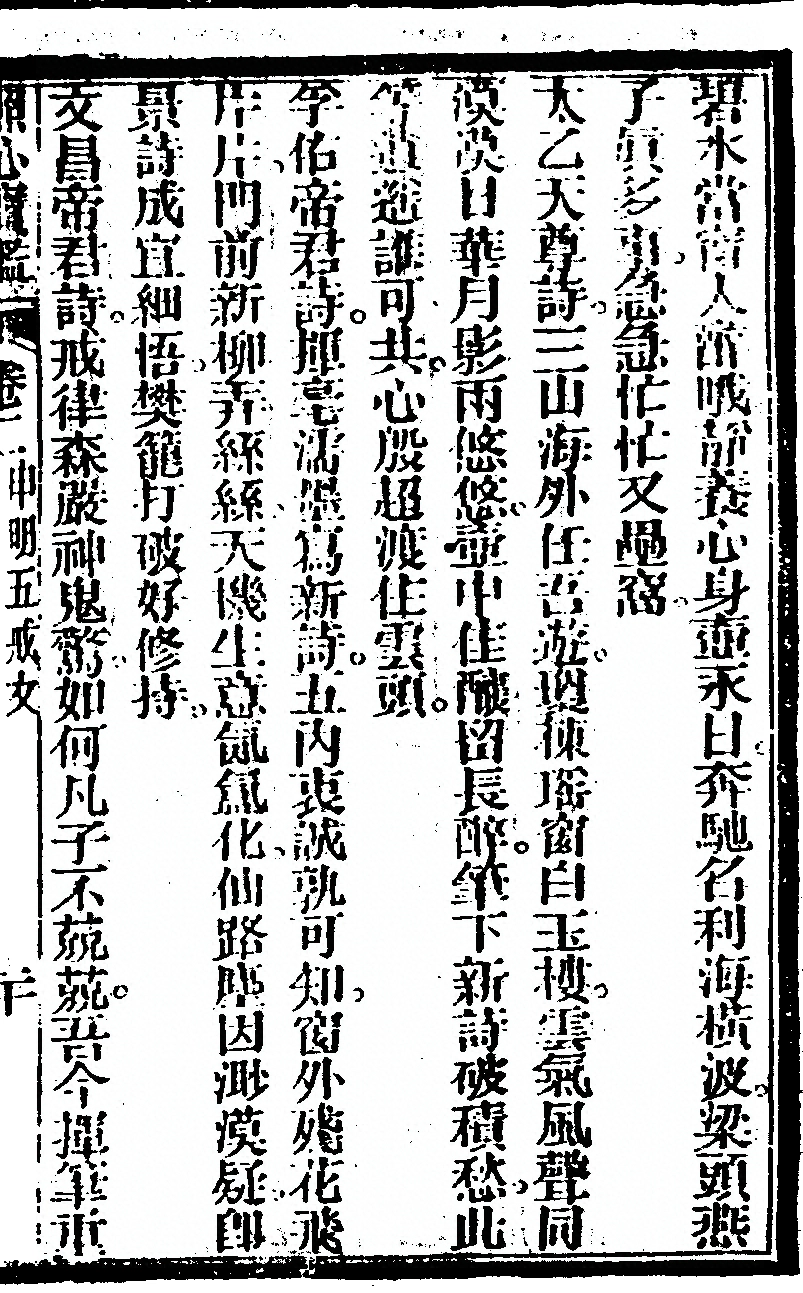 碧水當窗人當哦靜養心身壺永日奔馳名利海橫波梁頭燕
子眞多事急急忙忙又壘窩
太乙天尊詩三山海外任吾遊與棟瑤窗白玉樓雲氣風聲同
漠漠日華月影兩悠悠壺中佳釀留長醉筆下新詩破積愁此
等逍遙誰可共心殷超渡住雲頭
孚佑帝君詩揮毫濡墨寫新詩五內衷誠孰可知窗外殘花飛
片片門前新柳弄絲絲天機生意氤氳化仙路塵因渺漠疑卽
景詩成宜細悟樊籠打破好修持
文昌帝君詩戒律森嚴神鬼驚如何凡子不兢兢吾今揮筆重
照心寶鑑 卷一 申明五戒文